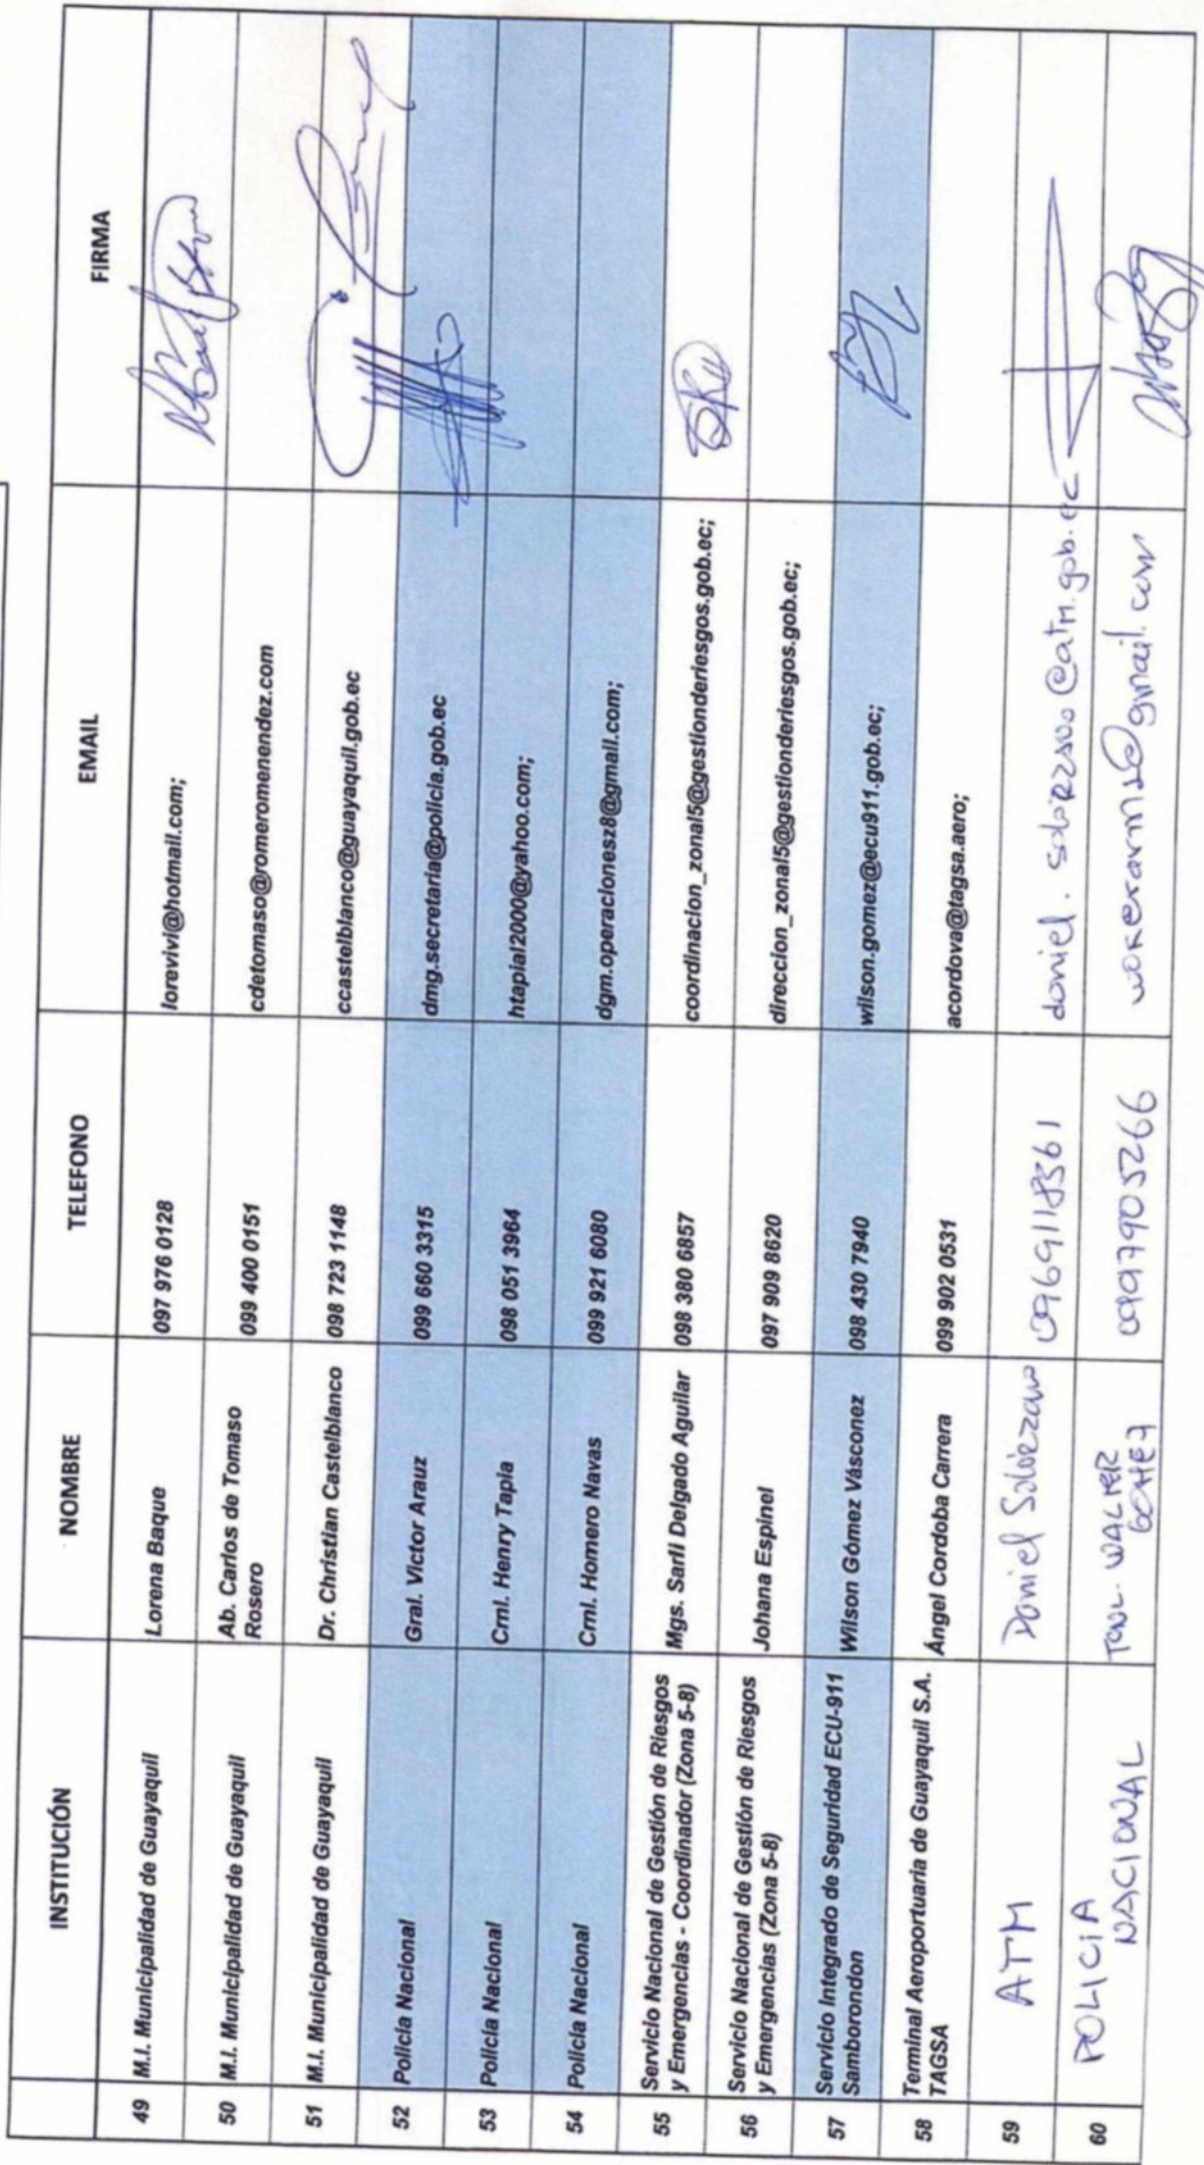 INSTITUCIÓN NOMBRE TELEFONO EMAIL FIRMA
49 M.I. Municipalidad de Guayaquil Lorena Baque 097 976 0128 lorevivi@hotmail.com;
50 M.I. Municipalidad de Guayaquil Ab. Carlos de Tomaso
Rosero 099 400 0151 cdetomaso@romeromenendez.com
51 M.I. Municipalidad de Guayaquil Dr. Christian Castelblanco 098 723 1148 ccastelblanco@guayaquil.gob.ec
52 Policía Nacional Gral. Victor Arauz 099 660 3315 dmg.secretaria@policia.gob.ec
53 Policía Nacional Crnl. Henry Tapia 098 051 3964 htapial2000@yahoo.com;
54 Policía Nacional Crnl. Homero Navas 099 921 6080 dgm.operacionesz8@gmail.com;
55 Servicio Nacional de Gestión de Riesgos
y Emergencias - Coordinador (Zona 5-8) Mgs. Sarli Delgado Aguilar 098 380 6857 coordinacion_zonal5@gestionderiesgos.gob.ec;
56 Servicio Nacional de Gestión de Riesgos
y Emergencias (Zona 5-8) Johana Espinel 097 909 8620 direccion_zonal5@gestionderiesgos.gob.ec;
57 Servicio Integrado de Seguridad ECU-911
Samborondon Wilson Gómez Vásconez 098 430 7940 wilson.gomez@ecu911.gob.ec;
58 Terminal Aeroportuaria de Guayaquil S.A.
TAGSA Ángel Cordoba Carrera 099 902 0531 acordova@tagsa.aero;
59 ATM Daniel Solórzano 0969118361
60 POLICIA
NACIONAL 0997905266